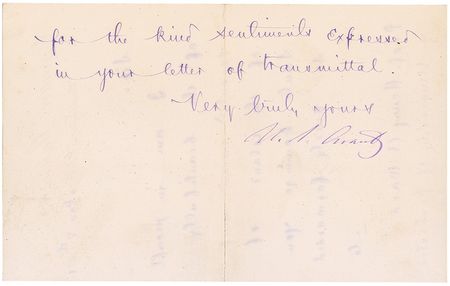 for the kind sentiments expressed
in your letter of transmittal.
Very truly yours
U. S. Grant